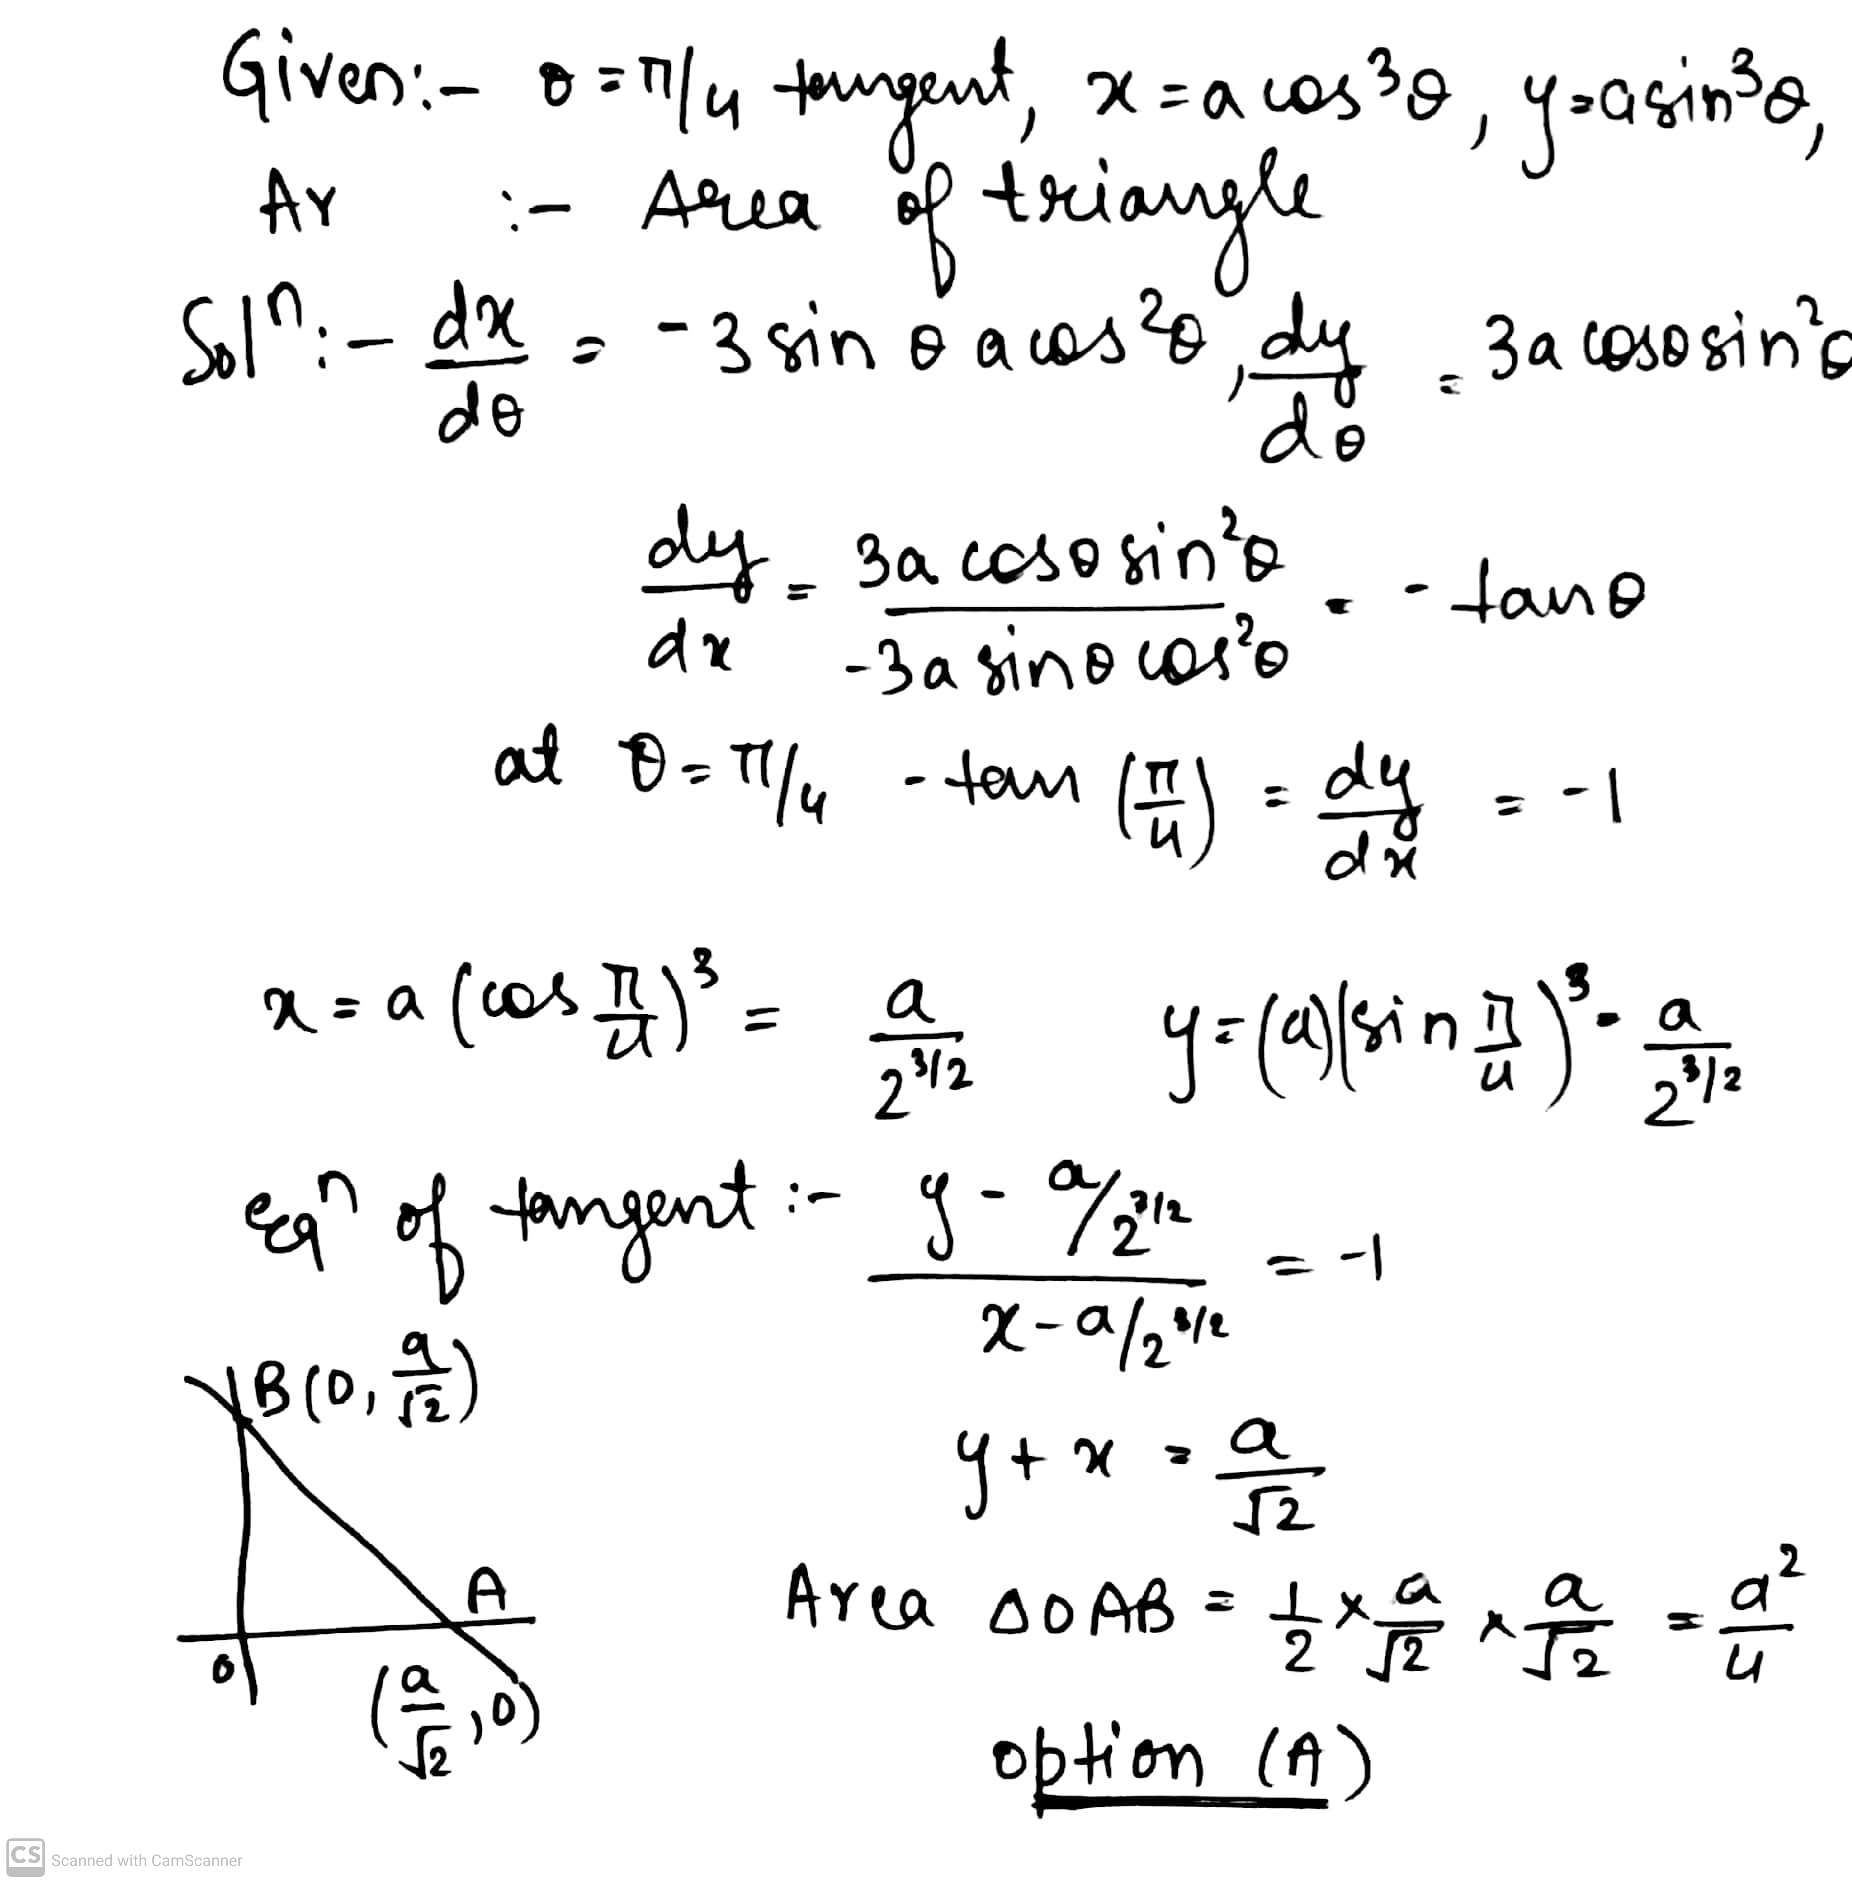 Given:- θ = π/4 tangent, x = a cos³θ, y = a sin³θ,
Ar :- Area of triangle
Solⁿ:- dx/dθ = -3 sin θ a cos²θ, dy/dθ = 3a cosθ sin²θ
dy/dx = 3a cosθ sin²θ / -3a sinθ cos²θ = - tanθ
at θ = π/4 - tan (π/4) = dy/dx = -1
x = a (cos π/4)³ = a/2^3/2 y = (a)(sin π/4)³ = a/2^3/2
eqⁿ of tangent :- y - a/2^3/2 / x - a/2^3/2 = -1
B(0, a/√2)
y + x = a/√2
A
Area ΔOAB = 1/2 × a/√2 × a/√2 = a²/4
O
(a/√2, 0)
option (A)
CS Scanned with CamScanner